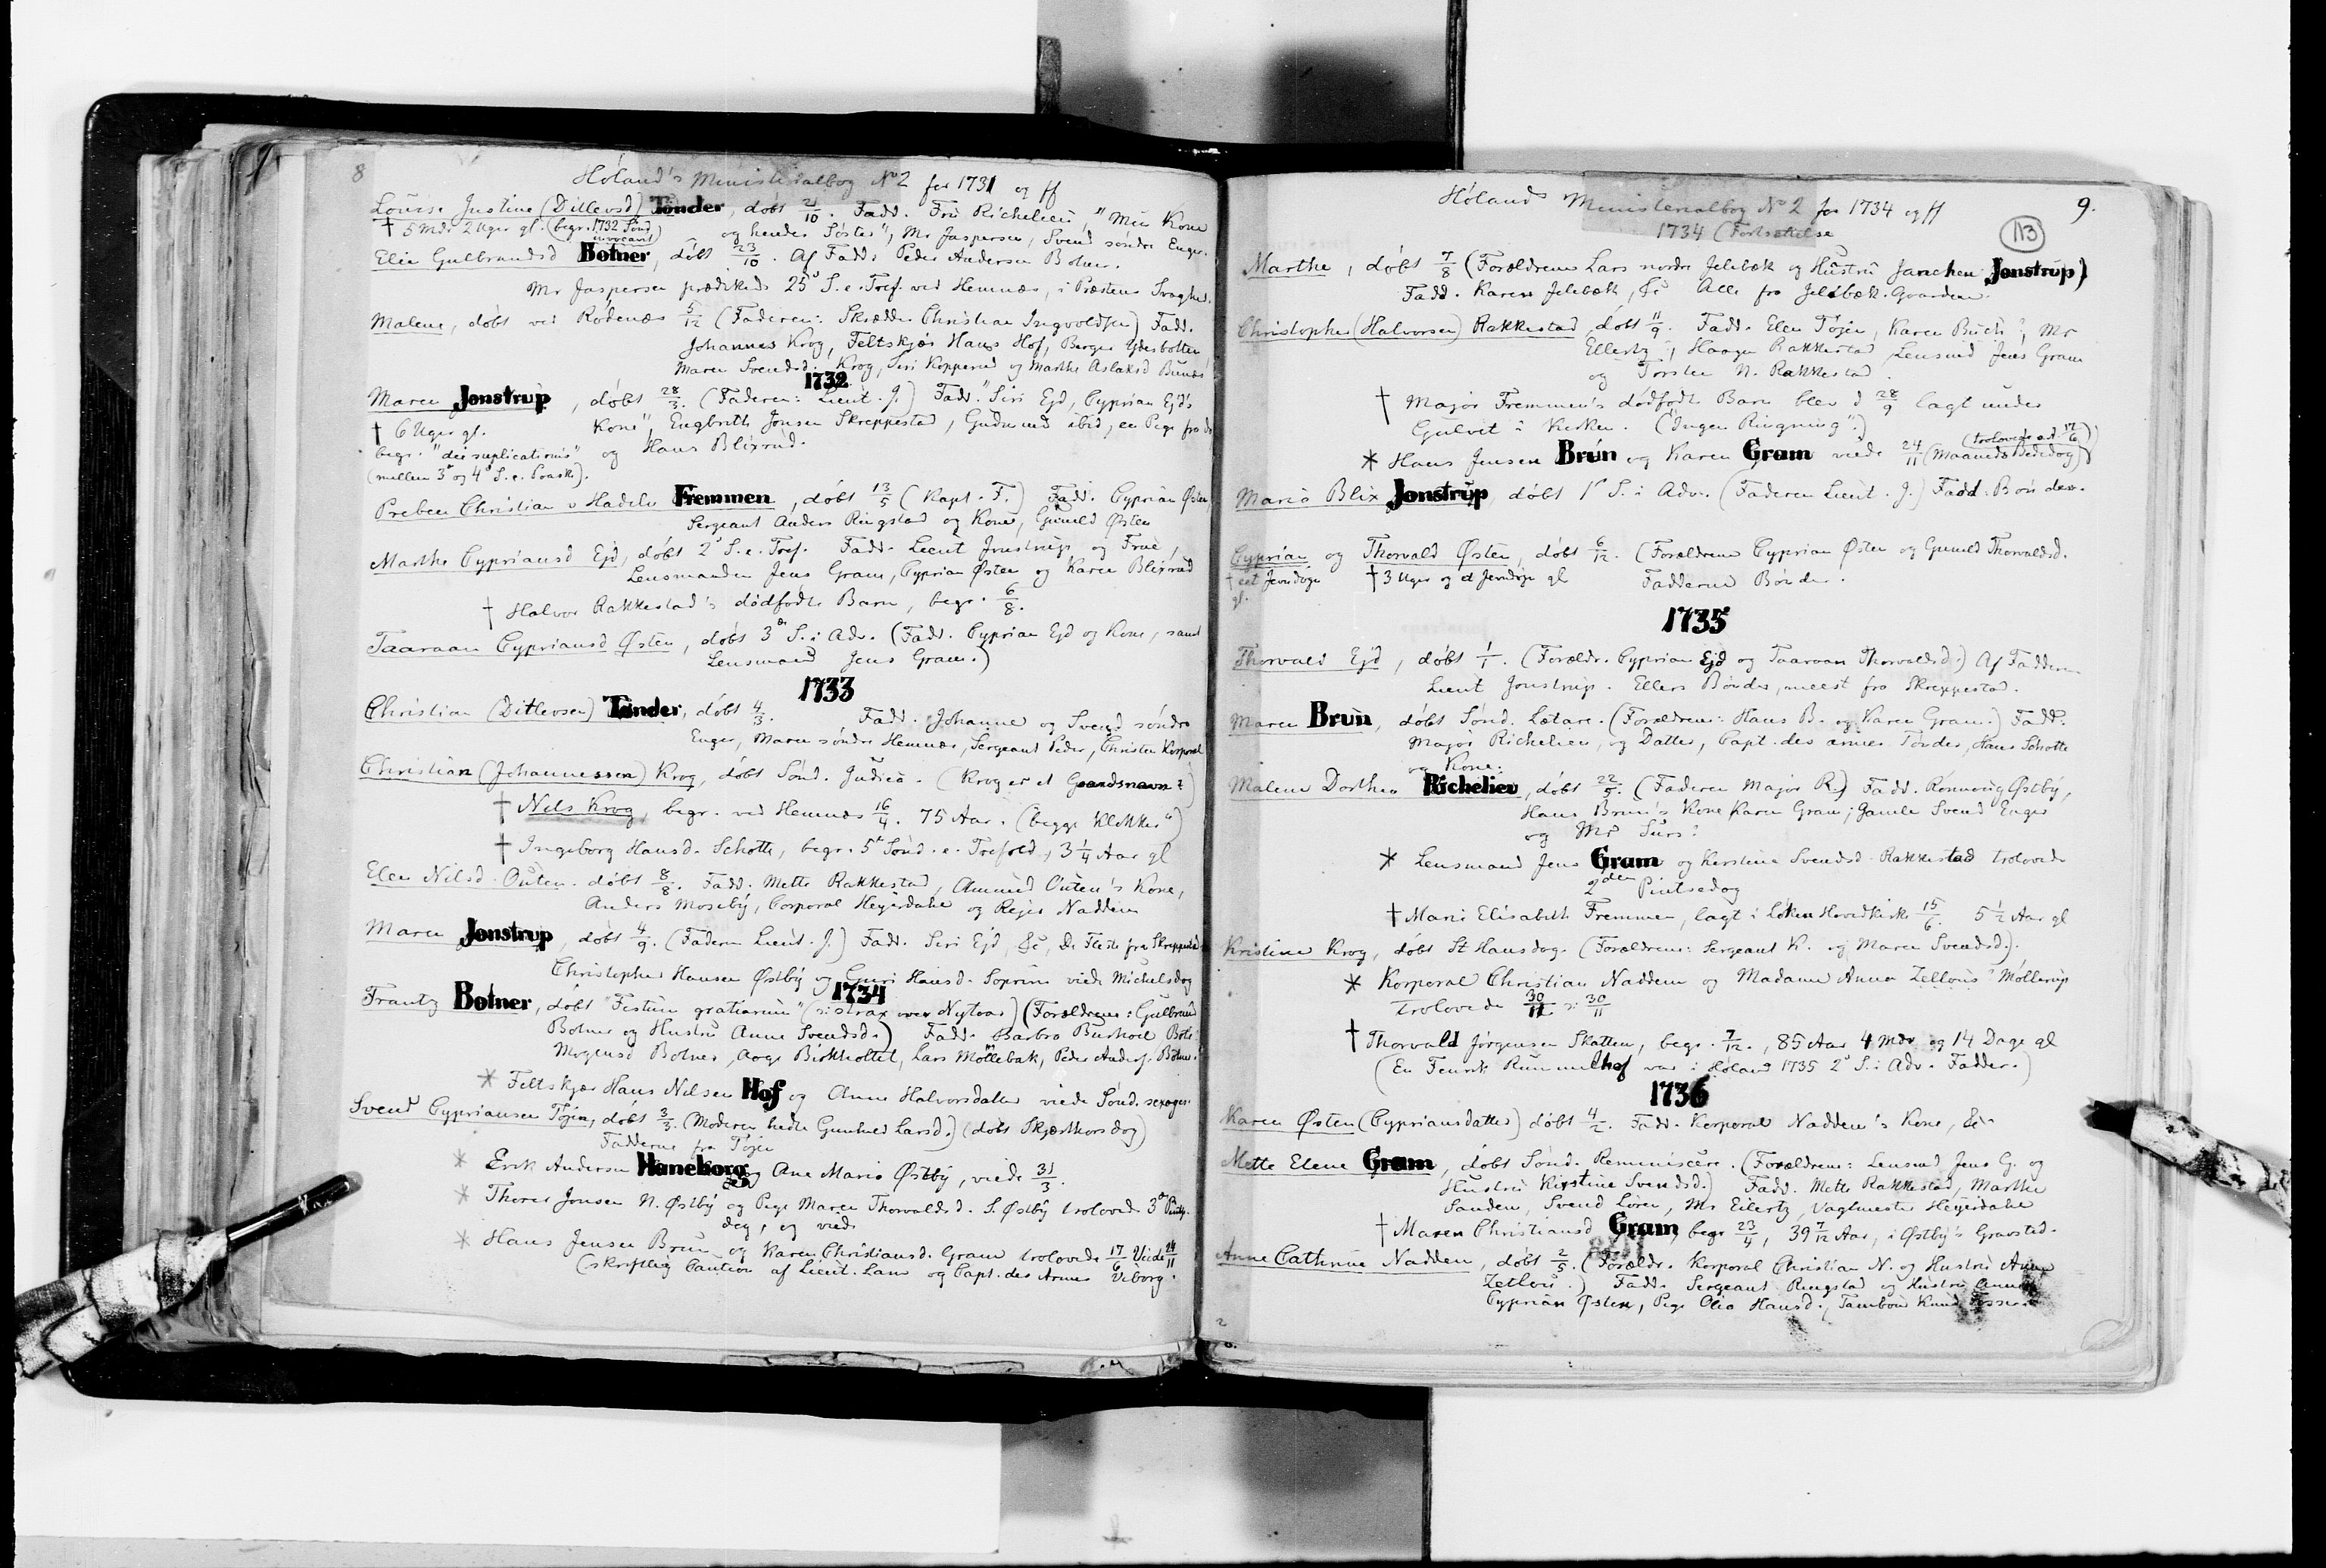 8
Høland's Ministerialbog No 2 for 1731 og ff
Louise Justine (Ditlevsd) Tønder, døbt 21/10. Fadd. Fru Richelieu, "Min Kone
† 5 Mdr 2 Uger gl. (begr. 1732 Sønd invocavit) og hendes Søster", Mr Jaspersen, Svend søndre Enger.
Elie Gulbrandsd Botner, døbt 23/10. Af Fadd. Peder Andersen Botner.
Mr Jaspersen prædikede 25de S. e. Tref. ved Hemnæs, i Præstens Svaghed.
Malene, døbt ved Rødenæs 5/12 (Faderen: Skrædder Christian Ingvoldsen) Fadd.
Johannes Krog, Feltskjær Hans Hof, Børger Ydersbotten,
Maren Svendsd. Krog, Siri Kopperud og Marthe Aslaksd Bunæs
1732
Maren Jonstrup, døbt 28/3. (Faderen: Lieut. J.) Fadd. Siri Ejd, Cyprian Ejd's
† 6 Uger gl. Kone, Engbrith Jonsen Skreppestad, Gudmund ibid, en Pige fra do
begr. "die suplicationis" og Hans Blixrud.
(mellem 3de og 4de S. e. Paaske).
Preben Christian v Hadeln Fremmen, døbt 13/5 (Kapt. F.) Fadd. Cyprian Østen,
Sergeant Anders Ringstad og Kone, Gunild Østen
Marthe Cypriansd Ejd, døbt 2de S. e. Tref. Fadd. Lieut Jonstrup og Frue,
Lensmanden Jens Gram, Cyprian Østen og Karen Blixrud
† Halvor Rakkestad's dødfødte Barn, begr. 6/8.
Taaraan Cypriansd Østen, døbt 3de S. i Adv. (Fadd. Cyprian Ejd og Kone, samt
Lensmand Jens Gram.)
1733
Christian (Ditlevsen) Tønder, døbt 4/3. Fadd. Johanne og Svend søndre
Enger, Maren søndre Hemnæs, Sergeant Peder, Christen Korporal
Christian (Johannessen) Krog, døbt Sønd. Judica. (Krog er et Gaardsnavn?)
† Nels Krog, begr. ved Hemnæs 16/4. 75 Aar. (begge Klokker")
† Ingeborg Hansd. Schotte, begr. 5te Sønd. e. Trefold, 3 1/4 Aar gl
Elen Nilsd. Outen. døbt 8/8. Fadd. Mette Rakkestad, Amund Outen's Kone,
Anders Moseby, Corporal Heyerdahl og Rejer Naddum
Maren Jonstrup, døbt 4/9. (Faderen Lieut. J.) Fadd. Siri Ejd, &c, De Fleste fra Skreppestad
Christopher Hansen Østby og Guri Hansd. Soprim viede Michelsdag
1734
Frantz Botner, døbt "Festum gratiarum" (: strax over Nytaar) (Forældrene: Gulbrand
Botner og Hustru Anne Svendsd.) Fadd. Barbro Bushoel Botn
Mogensd Botner, Aage Birkholtet, Lars Møllebak, Peder Anders. Botner.
* Feltskjær Hans Nilsen Hof og Anne Halvorsdatter viede Sønd. sexages:
Svend Cypriansen Tøjen, døbt 3/3. (Moderen hedte Gunhild Larsd.) (døbt Skjærthorsdag)
Fadderne fra Tøjen
* Erik Andersen Haneborg og Ane Maria Østby, viede 31/3.
* Thorer Jonsen N. Østby og Pige Maren Thorvaldsd. S. Østby trolovede 3de Pintse-
dag, og viede
* Hans Jensen Brun og Karen Christiansd. Gram trolovede 17/6 Viede 24/11
(skriftlig Caution af Lieut. Lam og Capt. des Armes Viborg.
9.
Høland's Ministerialbog No 2 for 1734 og ff
1734 (Fortsættelse
113
Marthe, døbt 7/8 (Forældrene Lars nordre Jelebæk og Hustru Janchen Jonstrup)
Fadd. Karen Jelebæk, &c Alle fra Jelebæk-Gaardene.
Christopher (Halvorsen) Rakkestad døbt 11/9. Fadd. Elen Tøjen, Karen Buch, Mr
Ellertz, Haagen Rakkestad, Lensmd Jens Gram
og Torsten N. Rakkestad.
† Major Fremmen's dødfødte Barn blev d 28/9 lagt under
Gulvet i Kirken. ("Ingen Ringning".)
* Hans Jensen Brun og Karen Gram viede 24/11 (Maaneds Bededag) (trolovede ad 17/6)
Maria Blix Jonstrup, døbt 1ste S. i Adv. (Faderen Lieut. J.) Fadd. Bønder.
Cyprian og Thorvald Østen, døbt 6/12. (Forældrene Cyprian Østen og Gunild Thorvaldsd.
† eet Jevndøgn gl. † 3 Uger og et Jevndøgn gl Fadderne Bønder.
1735
Thorvald Ejd, døbt 1/1. (Forældr. Cyprian Ejd og Taaraan Thorvaldsd.) Af Fadderne
Lieut Jonstrup. Ellers Bønder, meest fra Skreppestad.
Maren Brun, døbt Sønd. Lætare. (Forældrene: Hans B. og Karen Gram.) Fadd.
Major Richelieu, og Datter, Capt. des armes Tønder, Hans Schotte
og Kone.
Malene Dorthea Richelieu, døbt 22/5. (Faderen Major R.) Fadd. Rønnoug Østby,
Hans Brun's Kone Karen Gram, Gamle Svend Enger
og Mr Surs:
* Lensmand Jens Gram og Kerstine Svendsd. Rakkestad trolovede
2den Pintsedag
† Maria Elisabeth Fremmen, lagt i Løken Hovedkirke 15/6 5 1/2 Aar gl
Kristine Krog, døbt St Hansdag. (Forældrene: Sergeant K. og Maren Svendsd.).
* Korporal Christian Naddum og Madame Anna Zellous Møllerup
trolovede 30/11 : 30/11
† Thorvald Jörgensen Skatten, begr. 7/12., 85 Aar 4 Mdr og 14 Dage gl
(En Fenrik Rummelhof var i Høland 1735 2de S. i Adv. Fadder.)
1736
Karen Østen (Cypriansdatter) døbt 4/2. Fadd. Korporal Naddum's Kone, &c
Mette Elene Gram, døbt Sønd. Reminiscere. (Forældrene: Lensmd Jens G. og
Hustru Kirstine Svendsd.) Fadd. Mette Rakkestad, Marthe
Sanden, Svend Lören, Mr Eilertz, Vagtmester Heyerdahl
† Maren Christiansd Gram, begr 23/4, 39 7/12 Aar, i Østby's Gravsted.
Anne Cathrine Naddum, døbt 2/5. (Forældr. Korporal Christian N. og Hustru Anne
Zetlous.) Fadd. Sergeant Ringstad og Hustru Anne
Cyprian Østen, Pige Olia Hansd., Tambour Knud